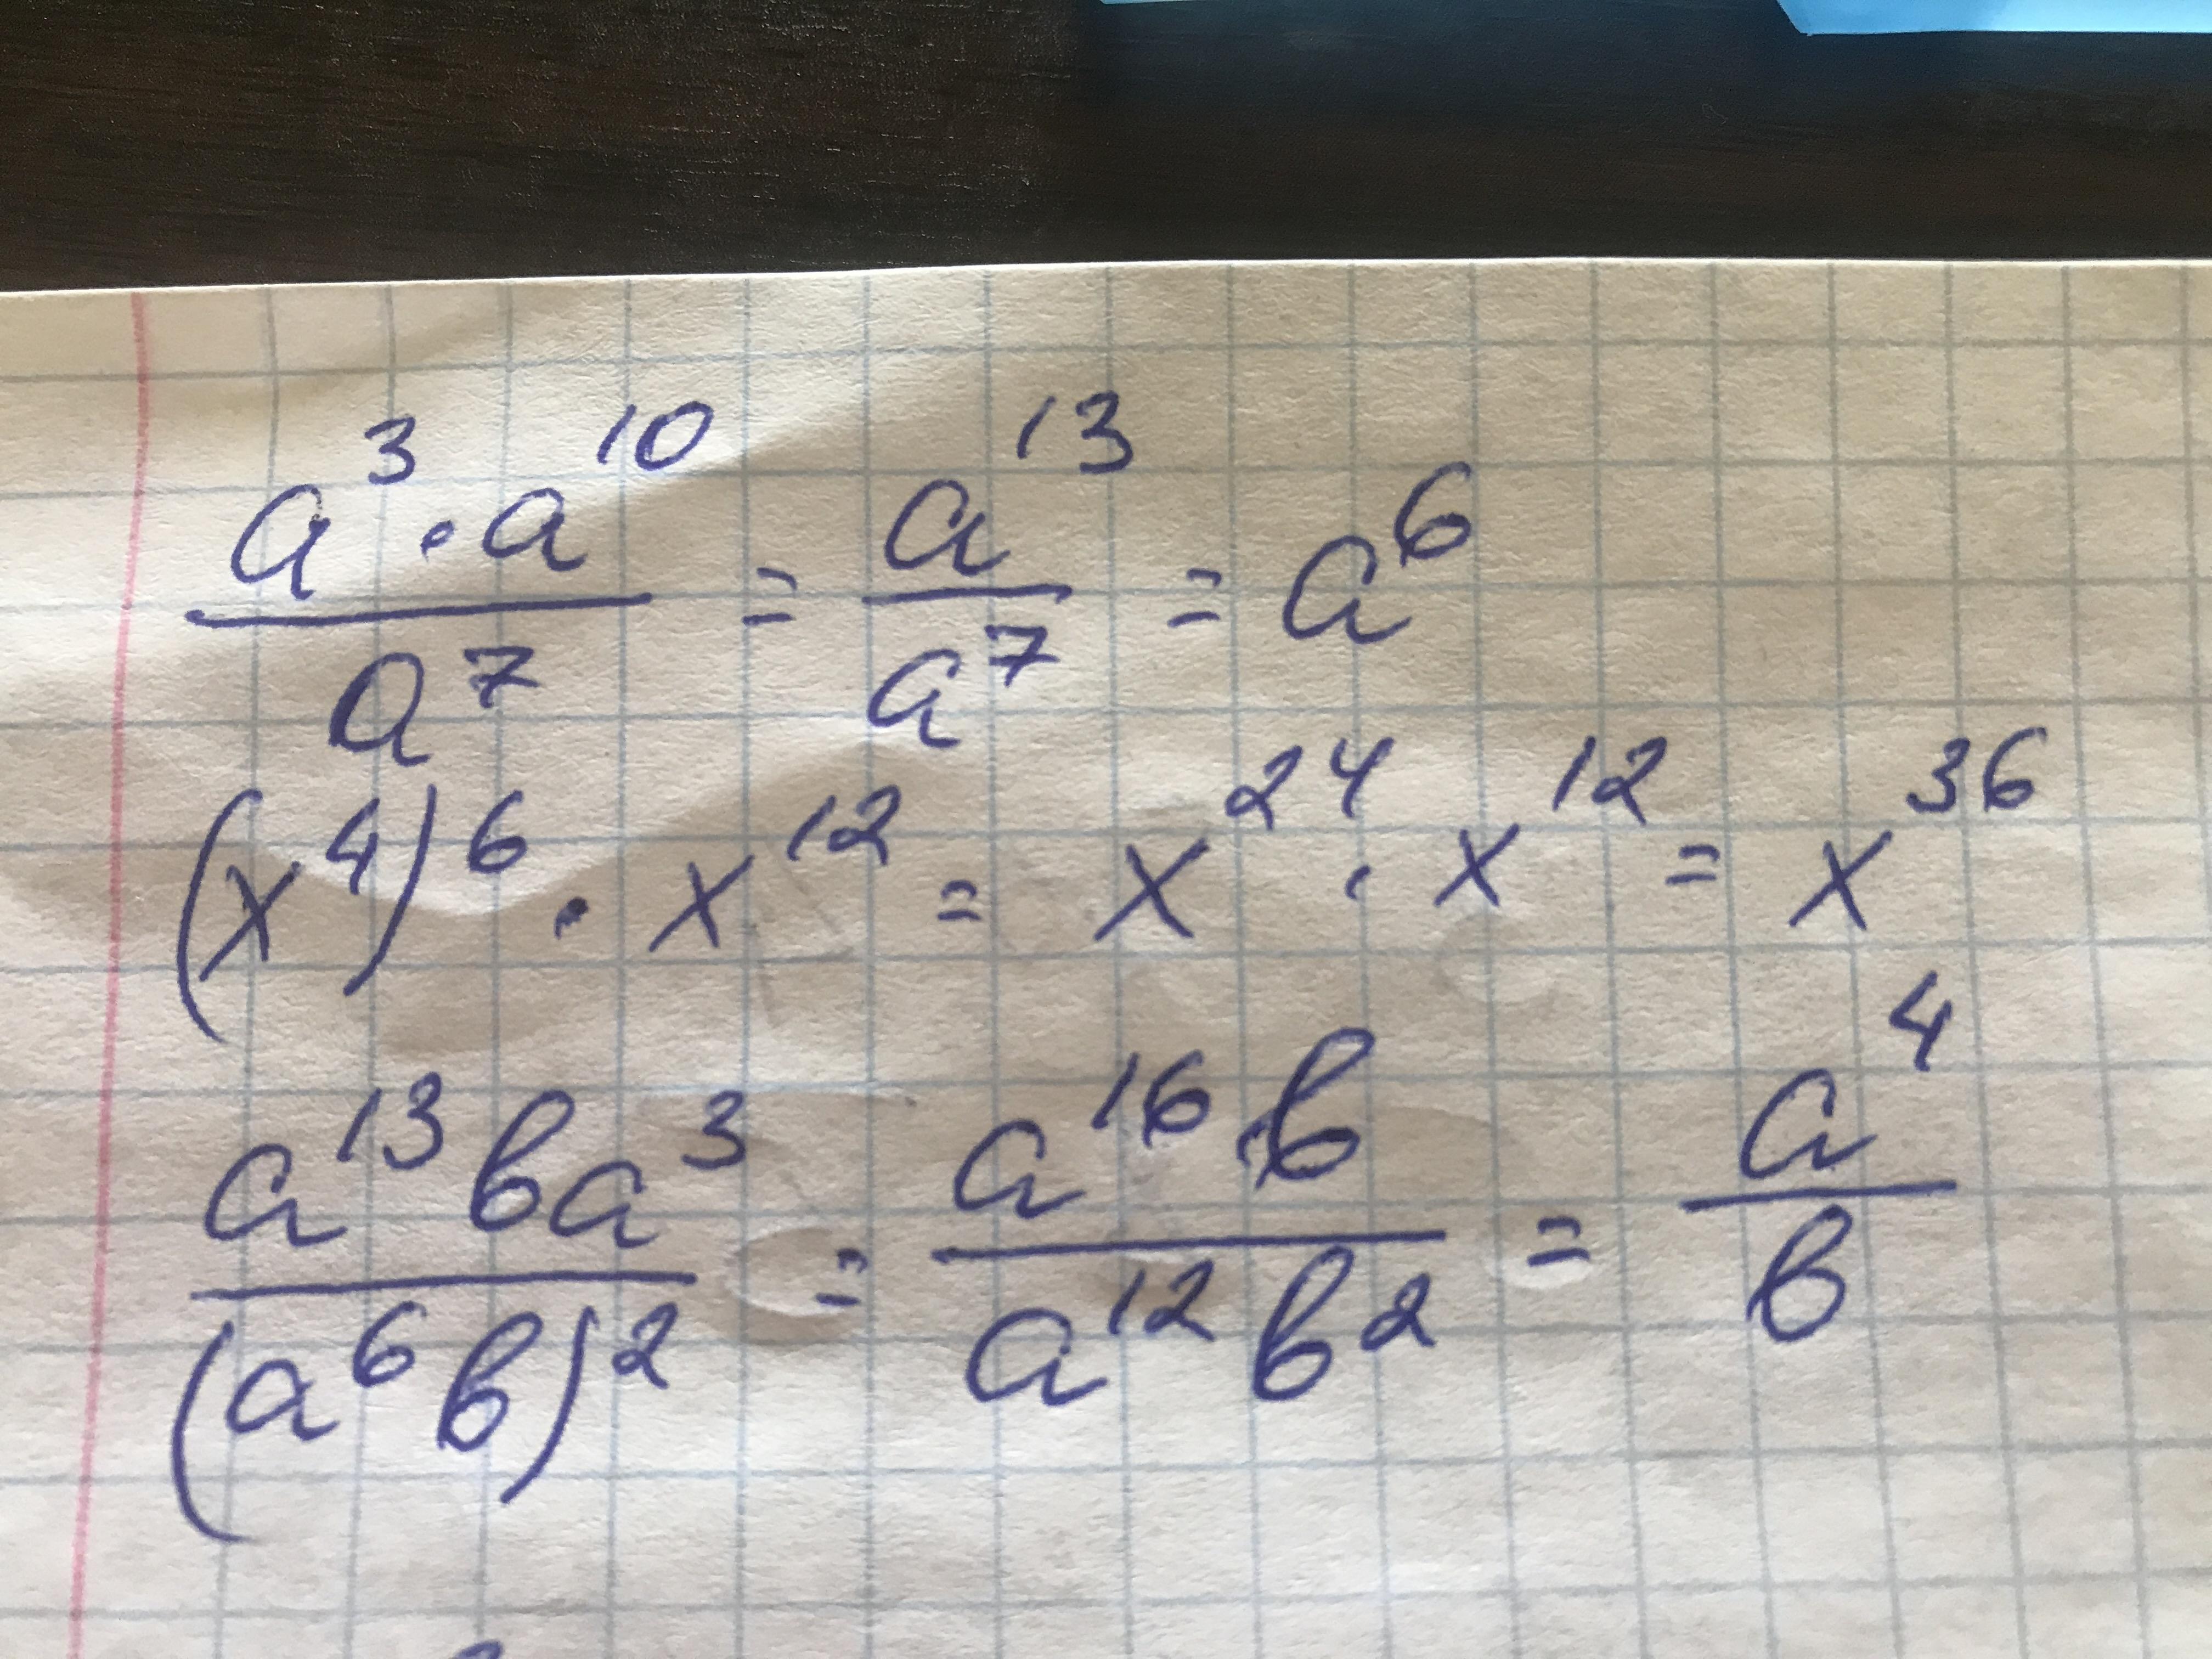 a³ · a¹⁰ / a⁷ = a¹³ / a⁷ = a⁶
(x⁴)⁶ · x¹² = x²⁴ · x¹² = x³⁶
a¹³ba³ / (a⁶b)² = a¹⁶·b / a¹²b² = a⁴ / b